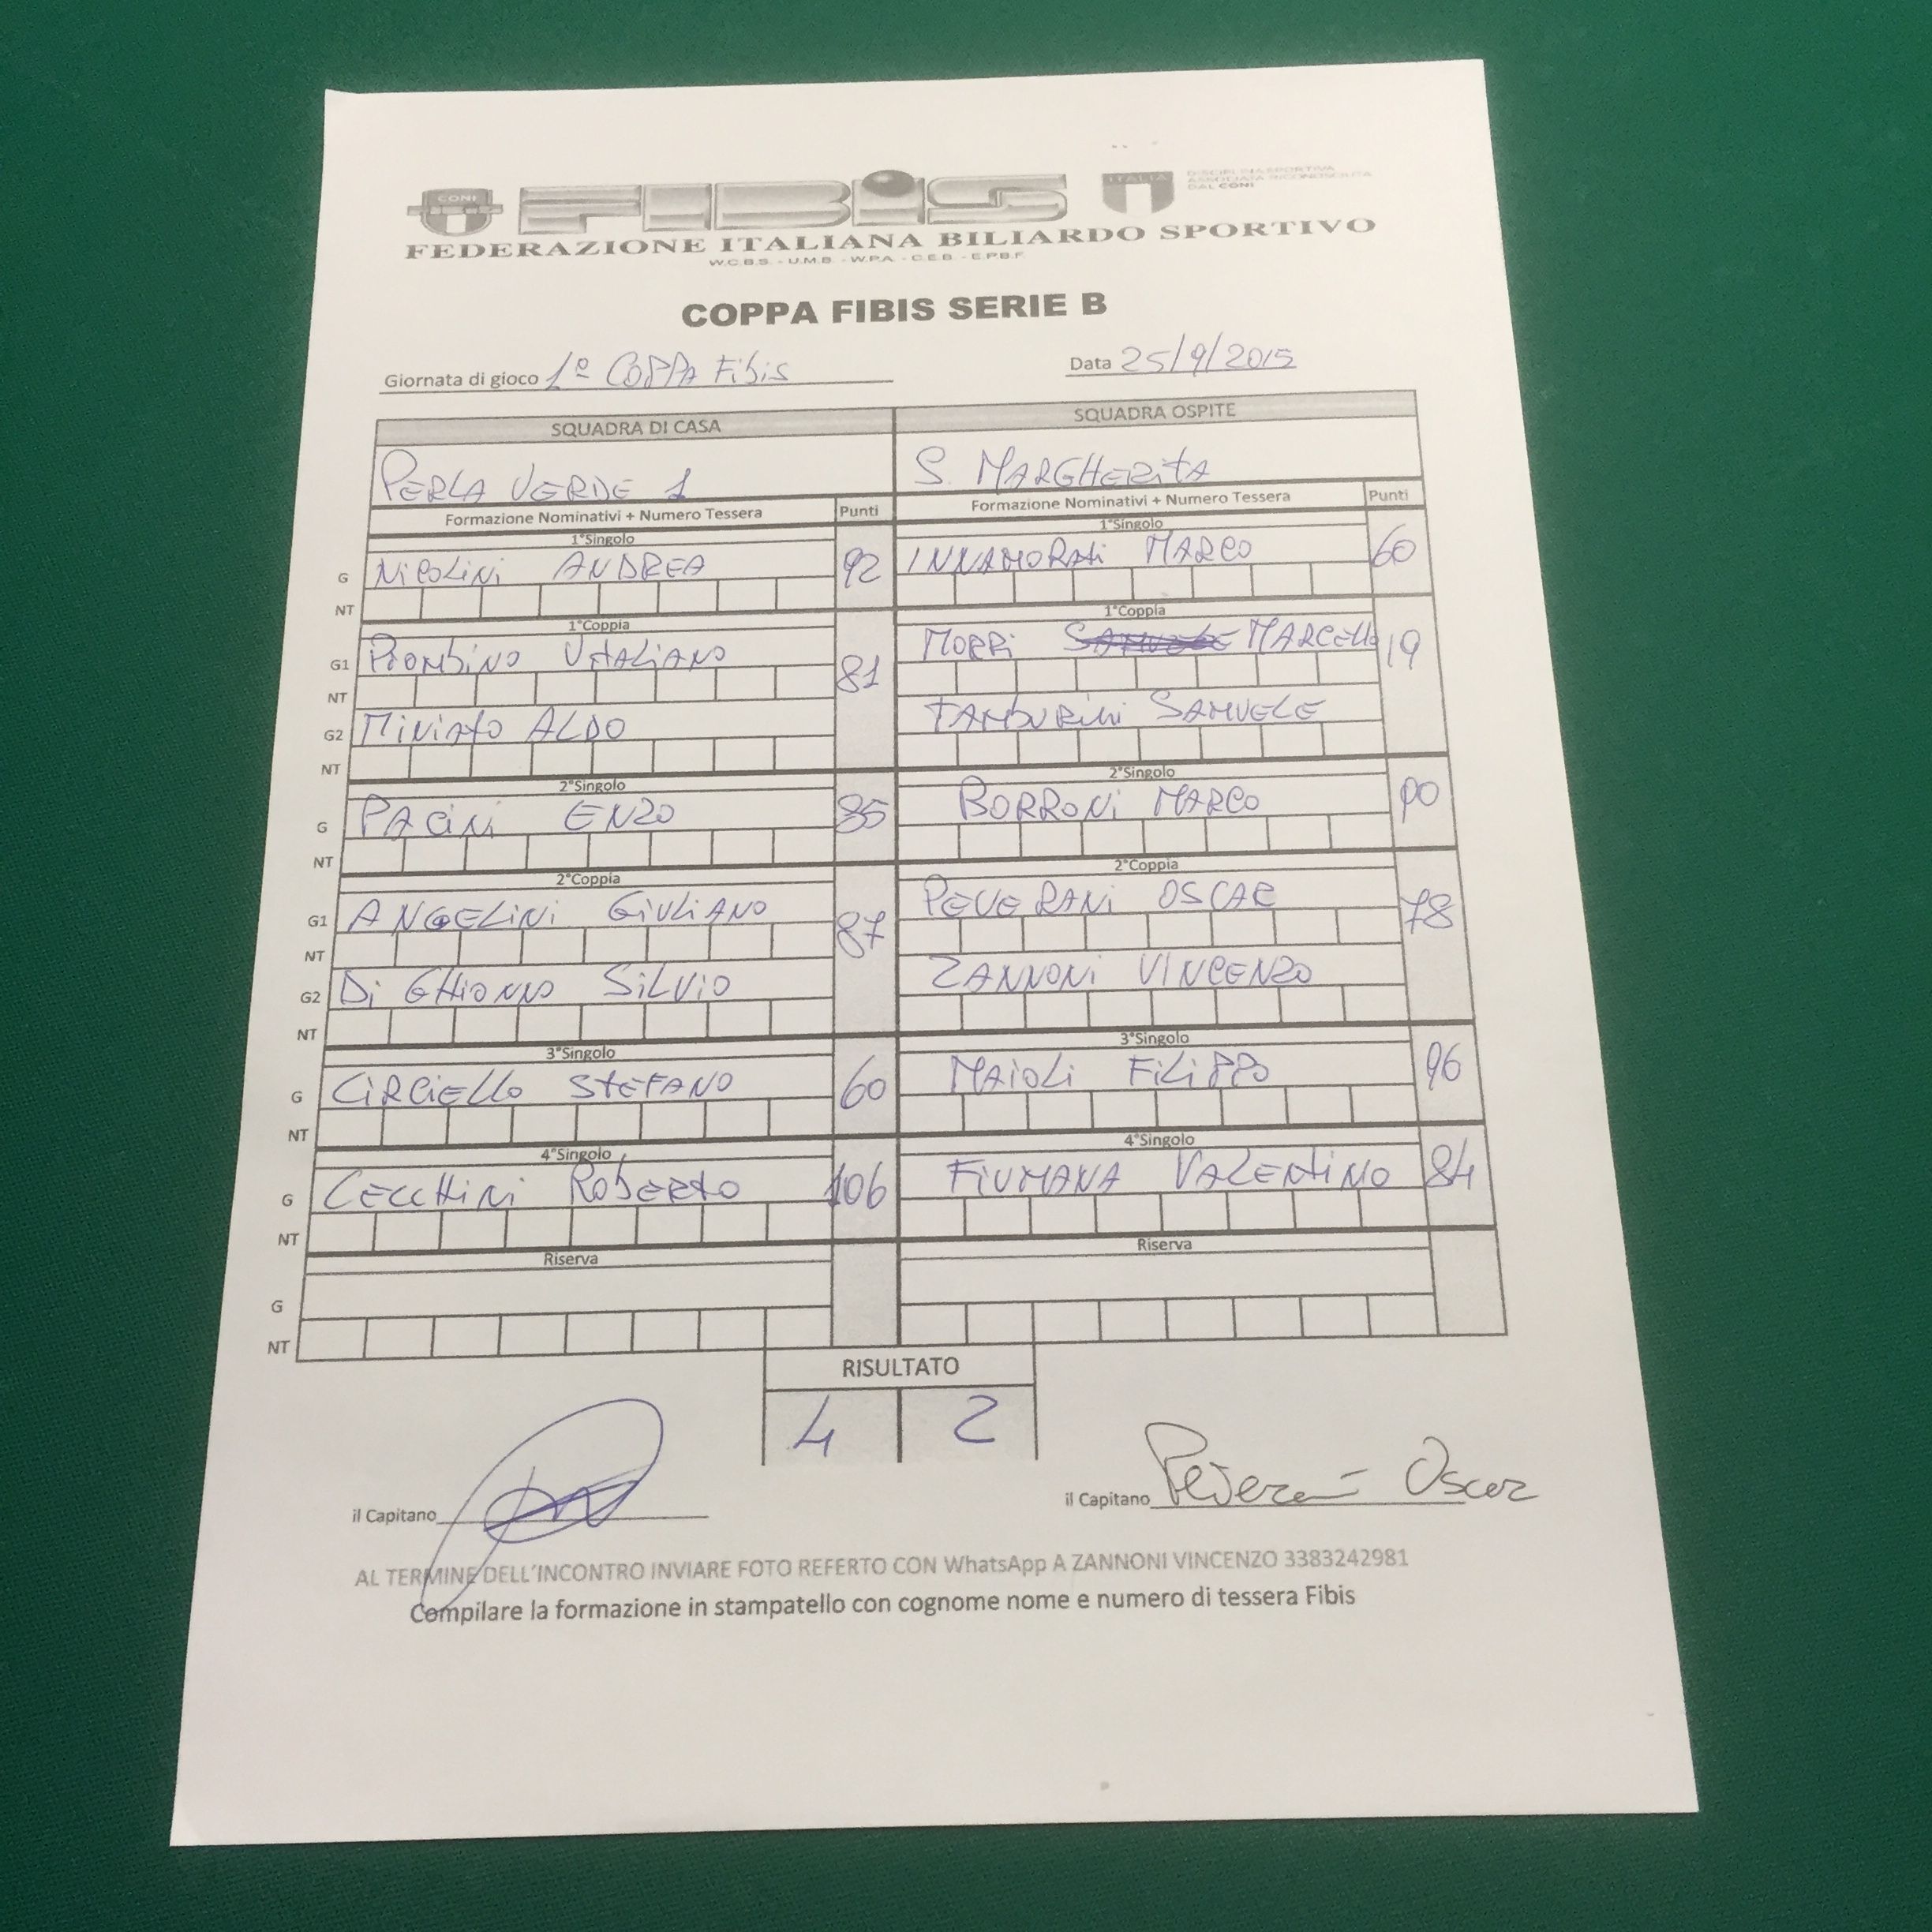 CONI FIBiS ITALIA DISCIPLINA SPORTIVA
ASSOCIATA RICONOSCIUTA
DAL CONI
FEDERAZIONE ITALIANA BILIARDO SPORTIVO
W.C.B.S. - U.M.B. - W.P.A. - C.E.B. - E.P.B.F.
COPPA FIBIS SERIE B
Giornata di gioco 1º COPPA Fibis Data 25/9/2015
SQUADRA DI CASA SQUADRA OSPITE
PERLA VERDE 1 S. MARGHERITA
Formazione Nominativi + Numero Tessera Punti Formazione Nominativi + Numero Tessera Punti
1°Singolo 1°Singolo
G NICOLINI ANDREA 92 INNAMORATI MARCO 60
NT
1°Coppia 1°Coppia
G1 PIOMBINO VITALIANO 81 MORRI SAMUELE MARCELLO 19
NT
G2 MINIATO ALDO TAMBURINI SAMUELE
NT
2°Singolo 2°Singolo
G PACINI ENZO 85 BORRONI MARCO 90
NT
2°Coppia 2°Coppia
G1 ANGELINI GIULIANO 87 PEVERANI OSCAR 78
NT
G2 Di GHIONNO SILVIO ZANNONI VINCENZO
NT
3°Singolo 3°Singolo
G CIRCIELLO STEFANO 60 MAIOLI FILIPPO 96
NT
4°Singolo 4°Singolo
G CECCHINI ROBERTO 106 FIUMANA VALENTINO 84
NT
Riserva Riserva
G
NT
RISULTATO
4 2
il Capitano il Capitano Peverani Oscar
AL TERMINE DELL'INCONTRO INVIARE FOTO REFERTO CON WhatsApp A ZANNONI VINCENZO 3383242981
Compilare la formazione in stampatello con cognome nome e numero di tessera Fibis